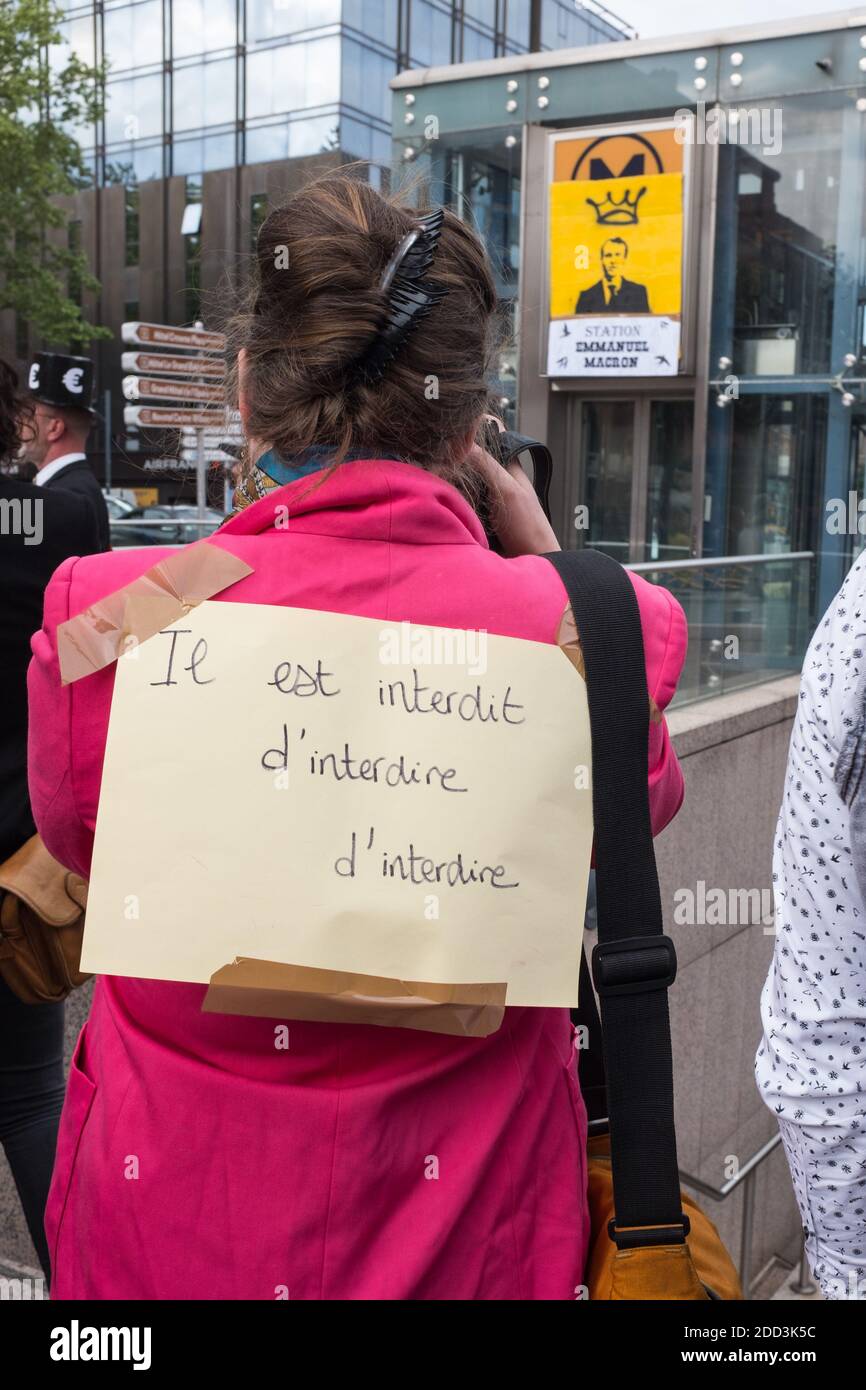 M
STATION
EMMANUEL
MACRON
€ €
AIRFRANCE
Il est interdit
d'interdire
d'interdire
alamy
Image ID: 2DD3K5C
www.alamy.com